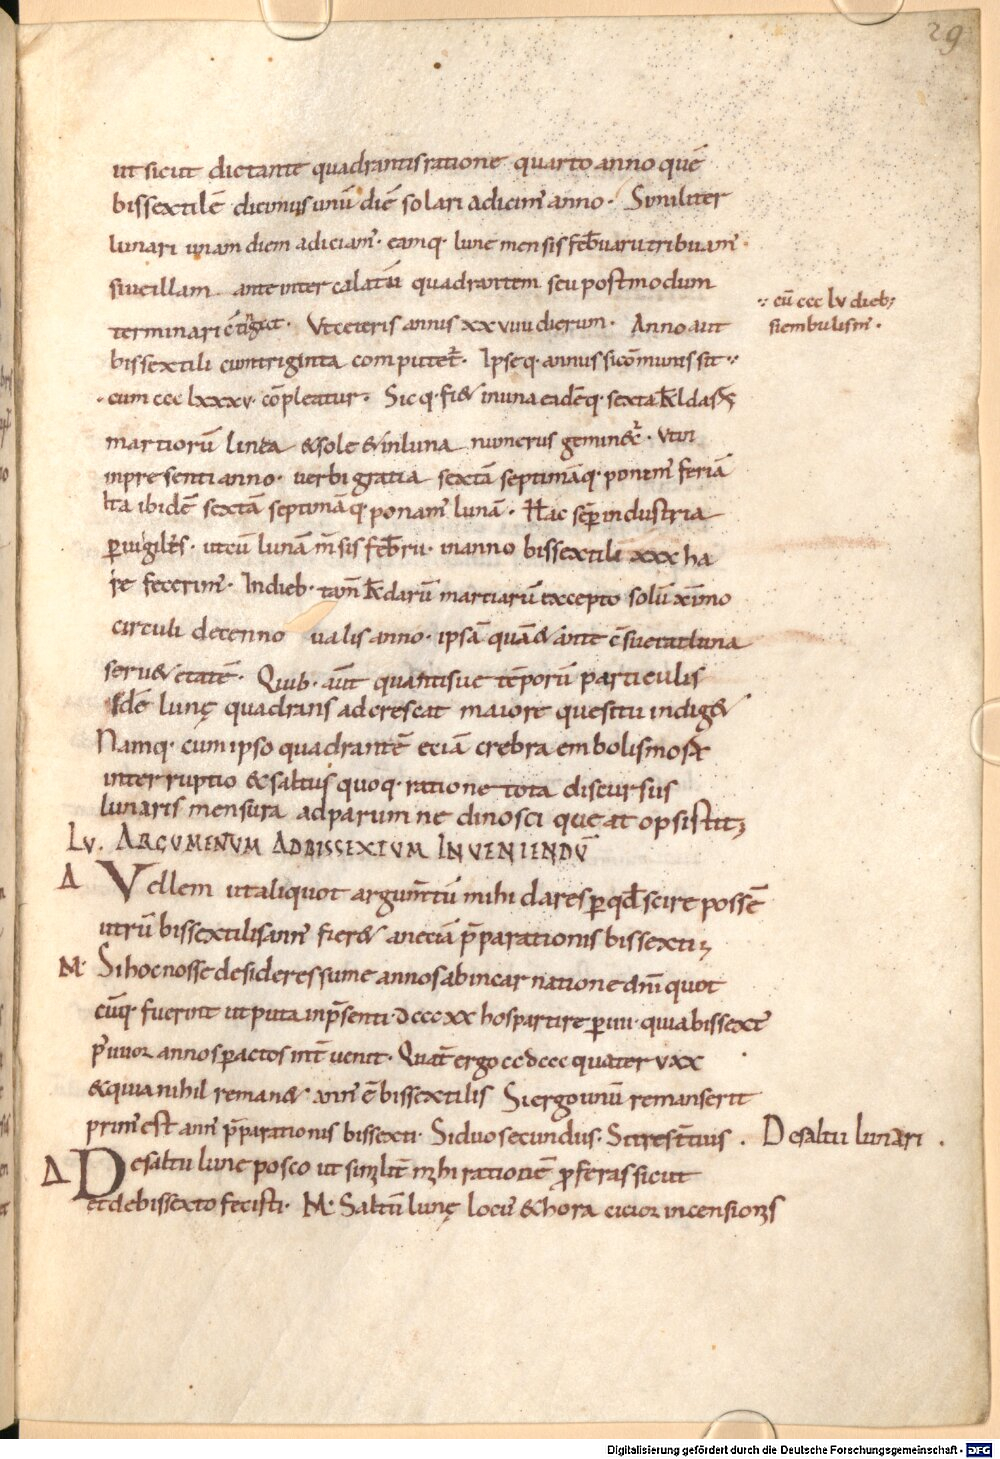 29
ut sicut dictante quadrantis ratione quarto anno quē
bissextilē dicimus unū diē solari adicim̄ anno· Similiter
lunari unam diem adiciam̄· eamq· lune mensis feb̄ruarii tribuam̄·
siue illam ante intercalatū quadrantem seu postmodum
terminari ꝯtigat· Ut ceteris annis xxviiii dierum· Anno aut
bissextili cum triginta computet̄· Ipseq· annus si cōmunis sit ·.·
·.· cū ccc lv dieb;
si embulism̄·
cum ccc lxxxv· cōpleatur· Sicq· fi& in una eadēq· sexta kl̄das
martiorū linea & sole & in luna numerus gemin&̄· Ut in
in presenti anno· uerbi gratia sextā septimāq· ponim̄ feriā
Ita ibidē sextā septimāq· ponam̄ lunā· Hac sēp industria
puigiles· ut cū lunā m̄sis feb̄ru· in anno bissextili xxx ha
re fecerim̄· In dieb· tam̄ kl̄darū martiarū excepto solū ximo
circuli decennoualis anno· ipsā quā & ante ꝯsueuit luna
seru& etatē· Quib· aūt quantisue tēporū particulis
Idē lunę quadrans adcrescat maiore questu indig&
Namq· cum ipso quadrantē eciā crebra embolismos
interruptio & saltus quoq· ratione tota discursus
lunaris mensura ad parum ne dinosci queat opsistit;
Lv. ARGUMENTUM AD BISSEXTUM INUENIENDŪ
Δ Vellem ut aliquot argum̄tū mihi dares p qd̄ scire possē
utrū bissextilis ann̄ fier& an eciā p̄parationis bissexti;
M· Si hoc nosse desideres sume annos ab incarnatione dn̄i quot
cūq· fuerint ut puta in p̄senti· dcccxx hos partire p iiii· quia bissext
p̄ iiiior annos pactos int̄ uenit· Quat̄ ergo cc dccc quater v xx
& quia nihil reman& ann̄ ē bissextilis Si ergo unū remanserit
prim̄ est ann̄ p̄parationis bissexti· Si duo secundus· Si tres t̄tius . De saltu lunari .
Δ De saltu lune posco ut simlit̄ mihi rationē p̄feras sicut
et de bissexto fecisti· M· Saltū lunę locū & hora citior incensionis
Digitalisierung gefördert durch die Deutsche Forschungsgemeinschaft - DFG